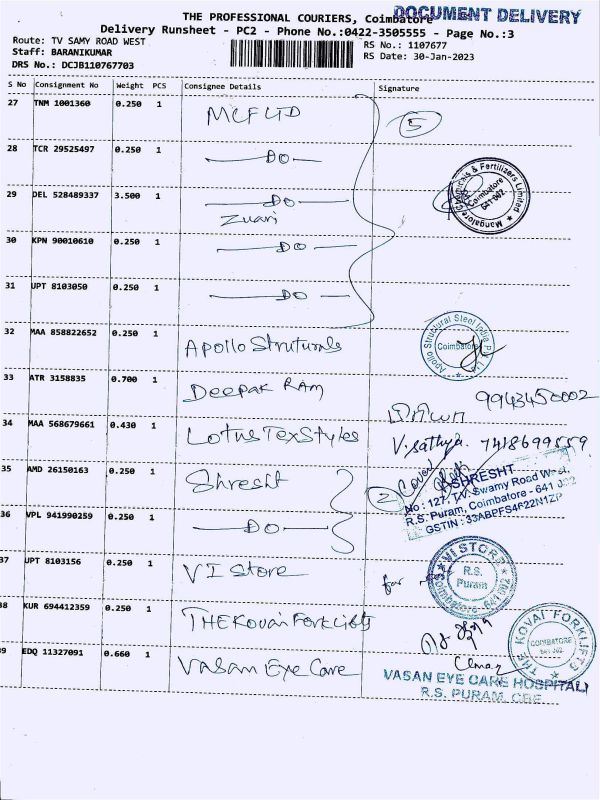 THE PROFESSIONAL COURIERS, Coimbatore
DOCUMENT DELIVERY
Delivery Runsheet - PC2 - Phone No.:0422-3505555 - Page No.:3
Route: TV SAMY ROAD WEST
RS No.: 1107677
Staff: BARANIKUMAR
RS Date: 30-Jan-2023
DRS No.: DCJB110767703
S No Consignment No Weight PCS Consignee Details Signature
27 TNM 1001360 0.250 1 MCF LTD
5
28 TCR 29525497 0.250 1 DO
Mangalore Chemicals & Fertilizers Limited
Coimbatore
641 002.
29 DEL 528489337 3.500 1 DO
Zuari
30 KPN 90010610 0.250 1 DO
31 UPT 8103050 0.250 1 DO
32 MAA 858822652 0.250 1 Apollo Struturals
Apollo Structural Steel India P
Coimbatore
33 ATR 3158835 0.700 1 Deepak RAM
9943450002
34 MAA 568679661 0.430 1 Lotus TexStyles
V.sathya. 7418699559
35 AMD 26150163 0.250 1 Shresht
2
SHRESHT
No : 127, T.V. Swamy Road West,
R.S. Puram, Coimbatore - 641 002
GSTIN : 33ABPFS4622N1ZP
36 VPL 941990259 0.250 1 DO
37 UPT 8103156 0.250 1 VI Store
for
VI STORE
R.S.
Puram
Coimbatore - 641 002
38 KUR 694412359 0.250 1 THE Kovai Forklists
THE KOVAI FORKLIFTS
COIMBATORE
641 002.
39 EDQ 11327091 0.660 1 Vasan Eye Care
VASAN EYE CARE HOSPITAL
R.S. PURAM, CBE